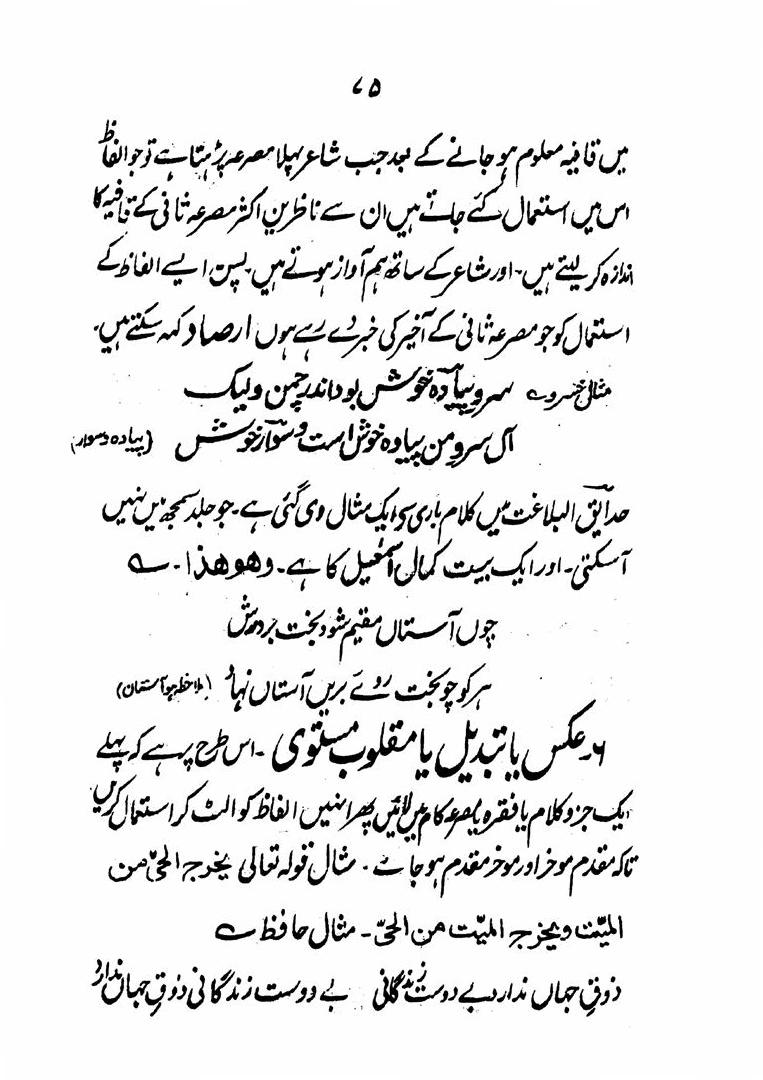 ۷۵
میں قافیہ معلوم ہو جانے کے بعد جب شاعر پہلا مصرعہ پڑہتا ہے تو جو الفاظ
اس میں استعمال کئے جاتے ہیں ان سے ناظرین اکثر مصرعہ ثانی کے قافیہ کا
اندازہ کر لیتے ہیں۔ اور شاعر کے ساتھ ہم آواز ہوتے ہیں۔ پس ایسے الفاظ کے
استعمال کو جو مصرعہ ثانی کے آخیر کی خبر دے رہے ہوں ارصاد کہہ سکتے ہیں۔
مثال خسرو ؎ سرو پیادہ خوش بود اندر چمن ولیک
آں سرو من پیادہ خوش است و سوار خوش (پیادہ وسوار)
حدایق البلاغت میں کلام باری کی ایک مثال دی گئی ہے۔ جو جلد سمجھ میں نہیں
آسکتی۔ اور ایک بیت کمال اسمٰعیل کا ہے۔ وھو ھذا۔ ؎
چوں آستاں مقیم شود بخت بر درش
ہر کو چو بخت روے بریں آستاں نہاد (ملاحظہ ہو آستان)
۶۔ عکس یا تبدیل یا مقلوب مستوی ۔ اس طرح پر ہے کہ پہلے
ایک جزو کلام یا فقرہ یا مصرعہ کام میں لائیں پھر انہیں الفاظ کو الٹ کر استعمال کریں
تاکہ مقدم موخر اور موخر مقدم ہو جائے۔ مثال قولہ تعالی یخرج الحیّ من
المیّت و یخرج المیّت من الحیّ۔ مثال حافظ ؎
ذوقِ جہاں ندارد بے دوست زندگانی بے دوست زندگانی ذوقِ جہاں ندارد